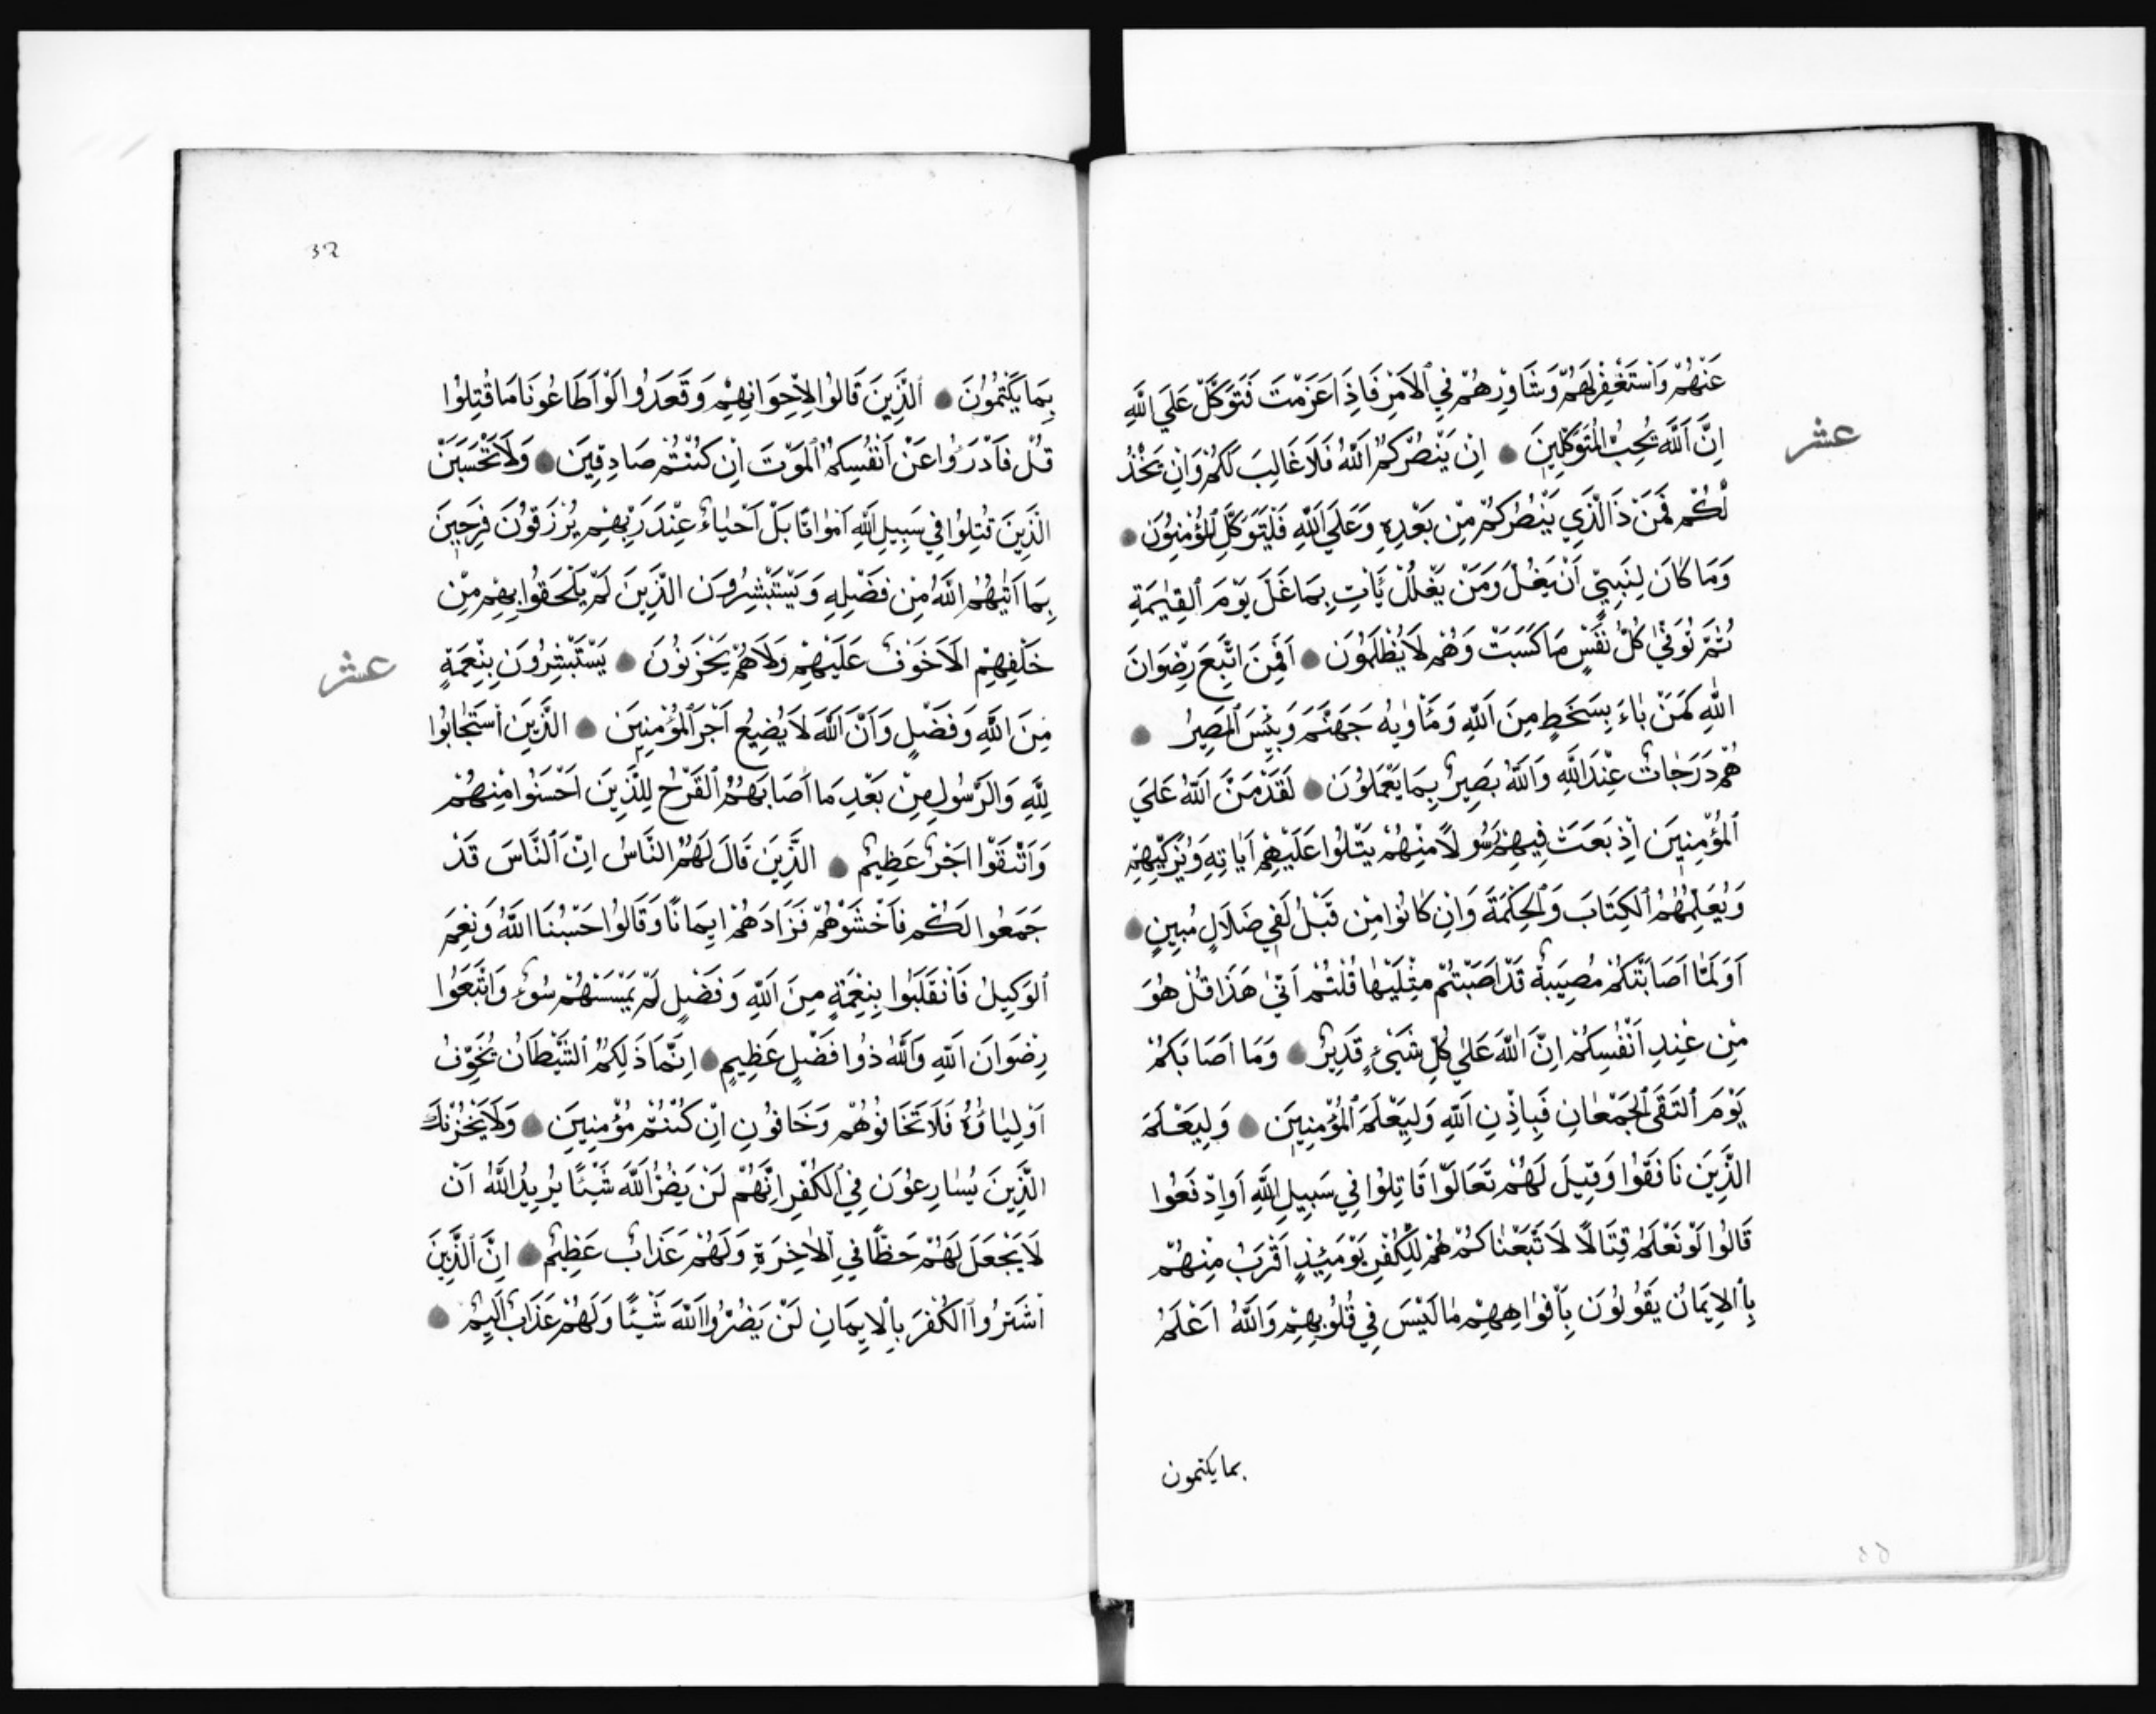 عَنْهُمْ وَاسْتَغْفِرْ لَهُمْ وَشَاوِرْهُمْ فِي الْاَمْرِ فَاِذَا عَزَمْتَ فَتَوَكَّلْ عَلَي اللَّهِ
عشر
اِنَّ اللَّهَ يُحِبُّ الْمُتَوَكِّلِينَ ۝ اِنْ يَنْصُرْكُمُ اللَّهُ فَلَا غَالِبَ لَكُمْ وَاِنْ يَخْذُ
لْكُمْ فَمَنْ ذَا الَّذِي يَنْصُرُكُمْ مِنْ بَعْدِهِ وَعَلَي اللَّهِ فَلْيَتَوَكَّلِ الْمُؤْمِنُونَ ۝
وَمَا كَانَ لِنَبِيٍّ اَنْ يَغُلَّ وَمَنْ يَغْلُلْ يَأْتِ بِمَا غَلَّ يَوْمَ الْقِيٰمَةِ
ثُمَّ تُوَفّٰي كُلُّ نَفْسٍ مَا كَسَبَتْ وَهُمْ لَا يُظْلَمُونَ ۝ اَفَمَنِ اتَّبَعَ رِضْوَانَ
اللَّهِ كَمَنْ بَاءَ بِسَخَطٍ مِنَ اللَّهِ وَمَأْوٰيهُ جَهَنَّمُ وَبِئْسَ الْمَصِيرُ ۝
هُمْ دَرَجَاتٌ عِنْدَ اللَّهِ وَاللَّهُ بَصِيرٌ بِمَا يَعْمَلُونَ ۝ لَقَدْ مَنَّ اللَّهُ عَلَي
الْمُؤْمِنِينَ اِذْ بَعَثَ فِيهِمْ رَسُولًا مِنْهُمْ يَتْلُوا عَلَيْهِمْ اٰيَاتِهِ وَيُزَكِّيهِمْ
وَيُعَلِّمُهُمُ الْكِتَابَ وَالْحِكْمَةَ وَاِنْ كَانُوا مِنْ قَبْلُ لَفِي ضَلَالٍ مُبِينٍ ۝
اَوَلَمَّا اَصَابَتْكُمْ مُصِيبَةٌ قَدْ اَصَبْتُمْ مِثْلَيْهَا قُلْتُمْ اَنّٰي هَذَا قُلْ هُوَ
مِنْ عِنْدِ اَنْفُسِكُمْ اِنَّ اللَّهَ عَلٰي كُلِّ شَيْءٍ قَدِيرٌ ۝ وَمَا اَصَابَكُمْ
يَوْمَ الْتَقَي الْجَمْعَانِ فَبِاِذْنِ اللَّهِ وَلِيَعْلَمَ الْمُؤْمِنِينَ ۝ وَلِيَعْلَمَ
الَّذِينَ نَافَقُوا وَقِيلَ لَهُمْ تَعَالَوْا قَاتِلُوا فِي سَبِيلِ اللَّهِ اَوِ ادْفَعُوا
قَالُوا لَوْ نَعْلَمُ قِتَالًا لَا تَّبَعْنَاكُمْ هُمْ لِلْكُفْرِ يَوْمَئِذٍ اَقْرَبُ مِنْهُمْ
بِالْاِيمَانِ يَقُولُونَ بِاَفْوَاهِهِمْ مَا لَيْسَ فِي قُلُوبِهِمْ وَاللَّهُ اَعْلَمُ
بما يكتمون
32
بِمَا يَكْتُمُونَ ۝ الَّذِينَ قَالُوا لِاِخْوَانِهِمْ وَقَعَدُوا لَوْ اَطَاعُونَا مَا قُتِلُوا
قُلْ فَادْرَؤُا عَنْ اَنْفُسِكُمُ الْمَوْتَ اِنْ كُنْتُمْ صَادِقِينَ ۝ وَلَا تَحْسَبَنَّ
الَّذِينَ قُتِلُوا فِي سَبِيلِ اللَّهِ اَمْوَاتًا بَلْ اَحْيَاءٌ عِنْدَ رَبِّهِمْ يُرْزَقُونَ فَرِحِينَ
بِمَا اٰتٰيهُمُ اللَّهُ مِنْ فَضْلِهِ وَيَسْتَبْشِرُونَ الَّذِينَ لَمْ يَلْحَقُوا بِهِمْ مِنْ
خَلْفِهِمْ اَلَّا خَوْفٌ عَلَيْهِمْ وَلَا هُمْ يَحْزَنُونَ ۝ يَسْتَبْشِرُونَ بِنِعْمَةٍ
عشر
مِنَ اللَّهِ وَفَضْلٍ وَاَنَّ اللَّهَ لَا يُضِيعُ اَجْرَ الْمُؤْمِنِينَ ۝ الَّذِينَ اسْتَجَابُوا
لِلَّهِ وَالرَّسُولِ مِنْ بَعْدِ مَا اَصَابَهُمُ الْقَرْحُ لِلَّذِينَ اَحْسَنُوا مِنْهُمْ
وَاتَّقَوْا اَجْرٌ عَظِيمٌ ۝ الَّذِينَ قَالَ لَهُمُ النَّاسُ اِنَّ النَّاسَ قَدْ
جَمَعُوا لَكُمْ فَاخْشَوْهُمْ فَزَادَهُمْ اِيمَانًا وَقَالُوا حَسْبُنَا اللَّهُ وَنِعْمَ
الْوَكِيلُ فَانْقَلَبُوا بِنِعْمَةٍ مِنَ اللَّهِ وَفَضْلٍ لَمْ يَمْسَسْهُمْ سُوءٌ وَاتَّبَعُوا
رِضْوَانَ اللَّهِ وَاللَّهُ ذُوا فَضْلٍ عَظِيمٍ ۝ اِنَّمَا ذَلِكُمُ الشَّيْطَانُ يُخَوِّفُ
اَوْلِيَاؤُهُ فَلَا تَخَافُوهُمْ وَخَافُونِ اِنْ كُنْتُمْ مُؤْمِنِينَ ۝ وَلَا يَحْزُنْكَ
الَّذِينَ يُسَارِعُونَ فِي الْكُفْرِ اِنَّهُمْ لَنْ يَضُرُّوا اللَّهَ شَيْئًا يُرِيدُ اللَّهُ اَنْ
لَا يَجْعَلَ لَهُمْ حَظًّا فِي الْاٰخِرَةِ وَلَهُمْ عَذَابٌ عَظِيمٌ ۝ اِنَّ الَّذِينَ
اشْتَرَوُا الْكُفْرَ بِالْاِيمَانِ لَنْ يَضُرُّوا اللَّهَ شَيْئًا وَلَهُمْ عَذَابٌ اَلِيمٌ ۝